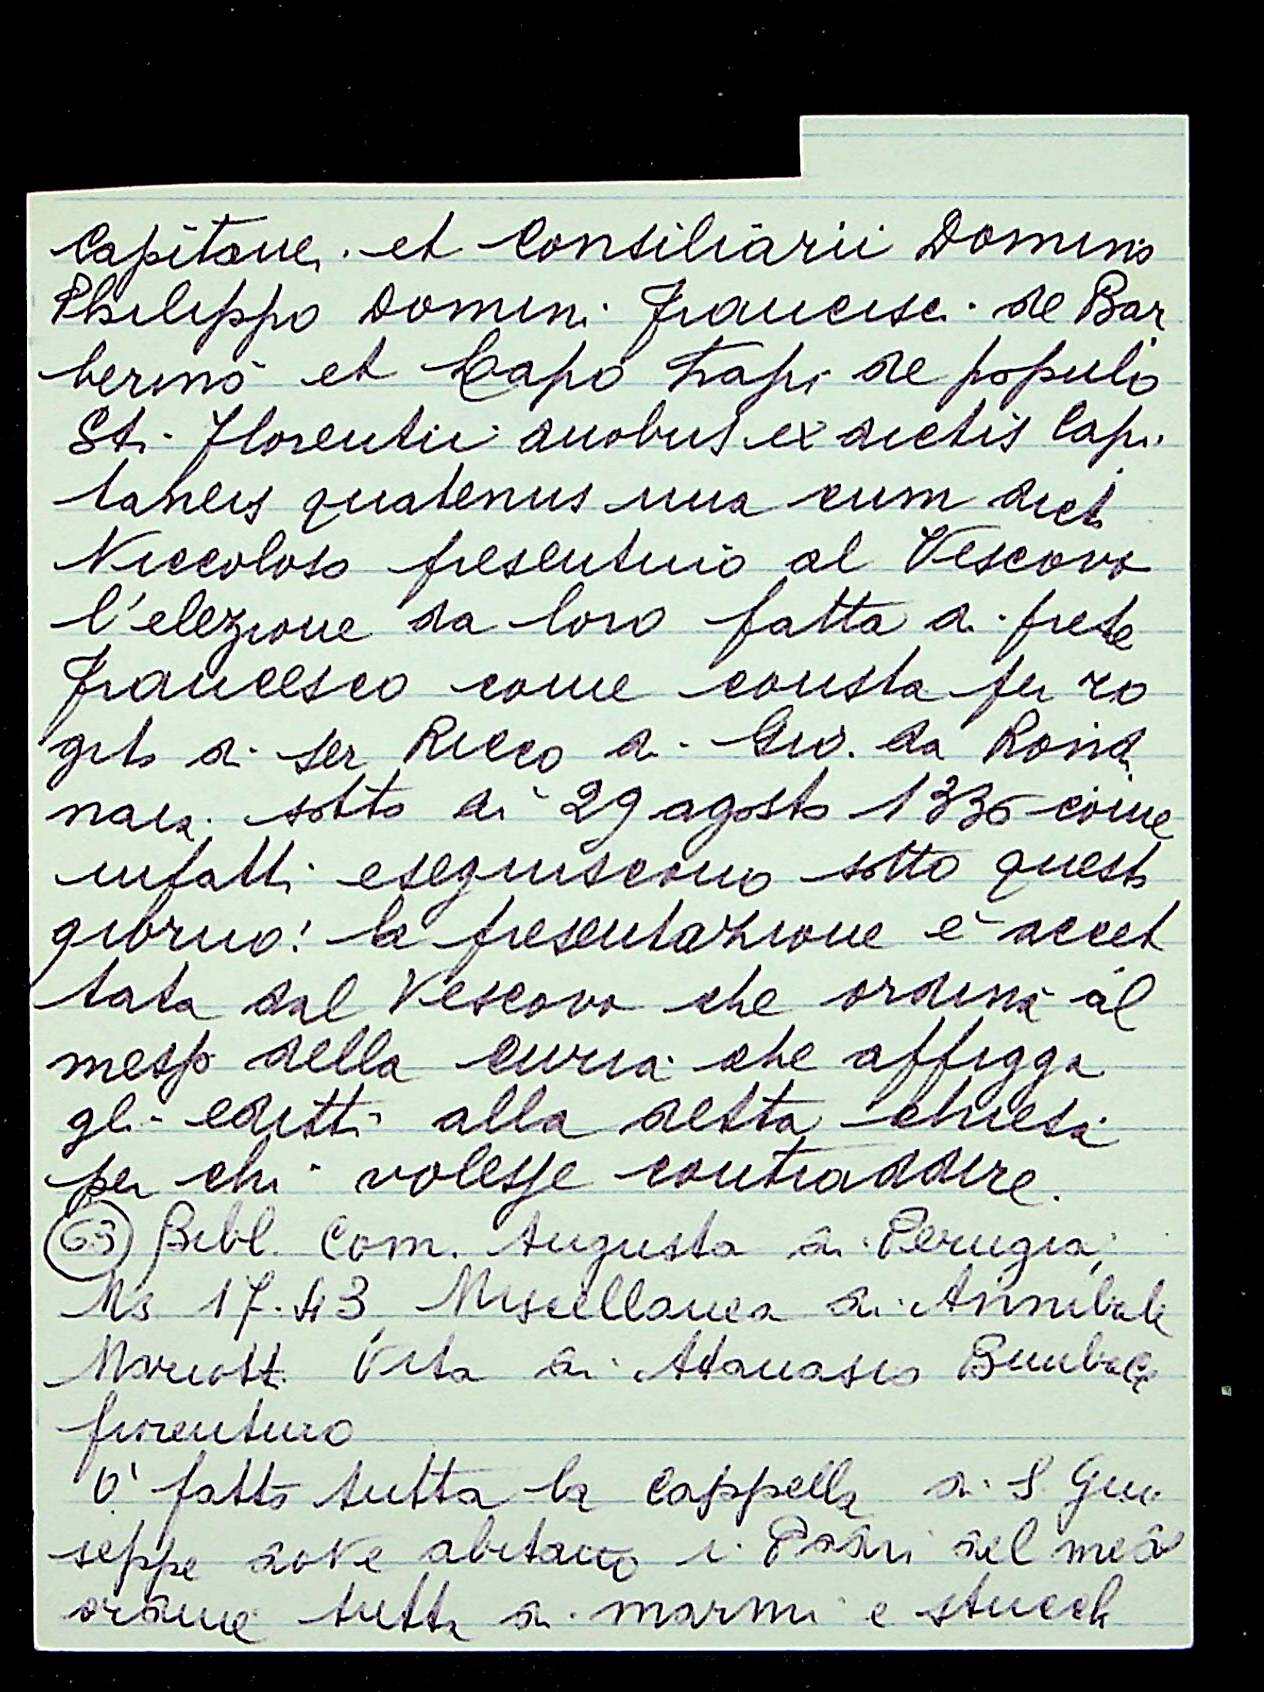 Capitanei. et Consiliarii Domino
Philippo Domini Francisci de Bar
berino et Lapo Trapi de populo
Sti. Florentii duobus ex dictis Capi
taneis quatenus una cum dicti
Niccoloso presentino al Vescovo
l'elezione da loro fatta di prete
Francesco come consta per ro
gito di ser Ricco di Gio. da Rondi
naia sotto di 29 agosto 1336 come
infatti eseguiscono sotto questo
giorno: la presentazione è accet
tata dal Vescovo che ordina al
messo della curia che affigga
gli editti alla detta chiesa
per chi volesse contraddire.
(63) Bibl. Com. Augusta di Perugia,
Ms 1743, Miscellanea di Annibale
Mariotti Vita di Atanasio Bimbacci
fiorentino
O' fatto tutta la cappella di S. Giu
seppe dove abitano i Padri del med
ordine tutta di marmi e stucchi